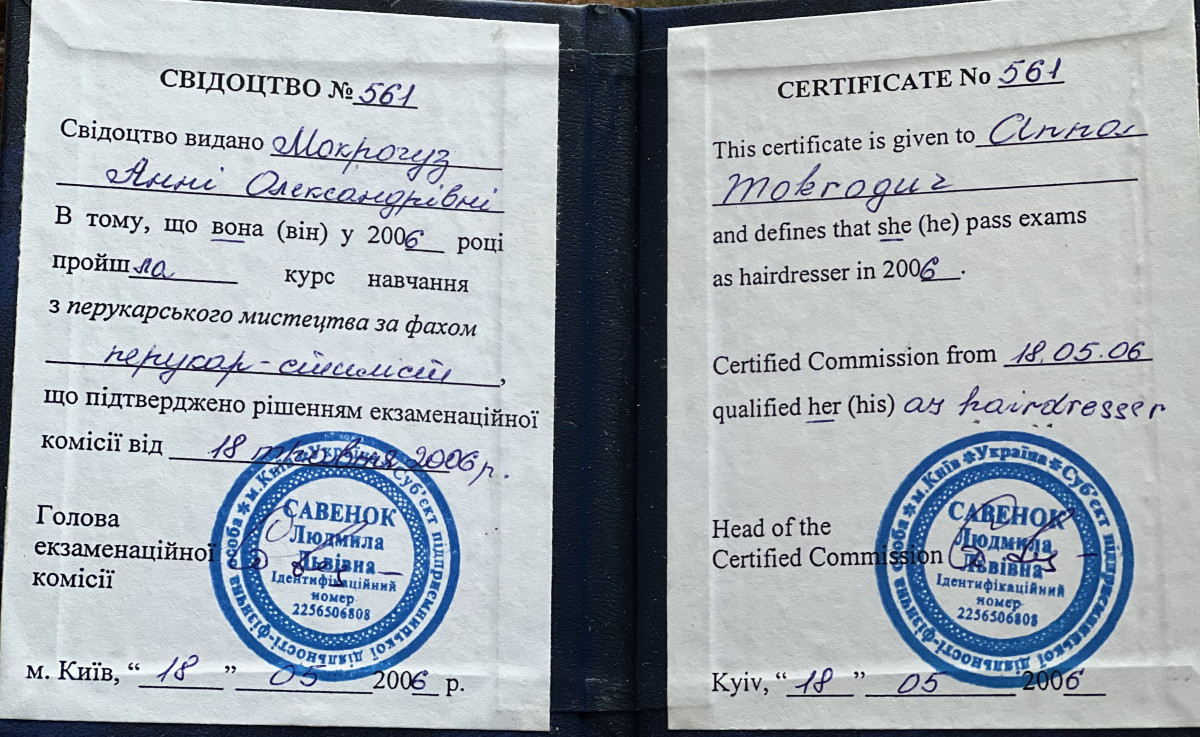 СВІДОЦТВО № 561
Свідоцтво видано Мокрогуз
Анні Олександрівні
В тому, що вона (він) у 2006 році
пройшла курс навчання
з перукарського мистецтва за фахом
перукар-стиліст,
що підтверджено рішенням екзаменаційної
комісії від 18 травня 2006 р.
Голова
екзаменаційної
комісії
м. Київ * Україна * Суб'єкт підприємницької діяльності-фізична особа *
САВЕНОК
Людмила
Львівна
Ідентифікаційний
номер
2256506808
м. Київ, “18” 05 2006 р.
CERTIFICATE No 561
This certificate is given to Anna
Mokroguz
and defines that she (he) pass exams
as hairdresser in 2006.
Certified Commission from 18.05.06
qualified her (his) as hairdresser
Head of the
Certified Commission
м. Київ * Україна * Суб'єкт підприємницької діяльності-фізична особа *
САВЕНОК
Людмила
Львівна
Ідентифікаційний
номер
2256506808
Kyiv, “18” 05 2006